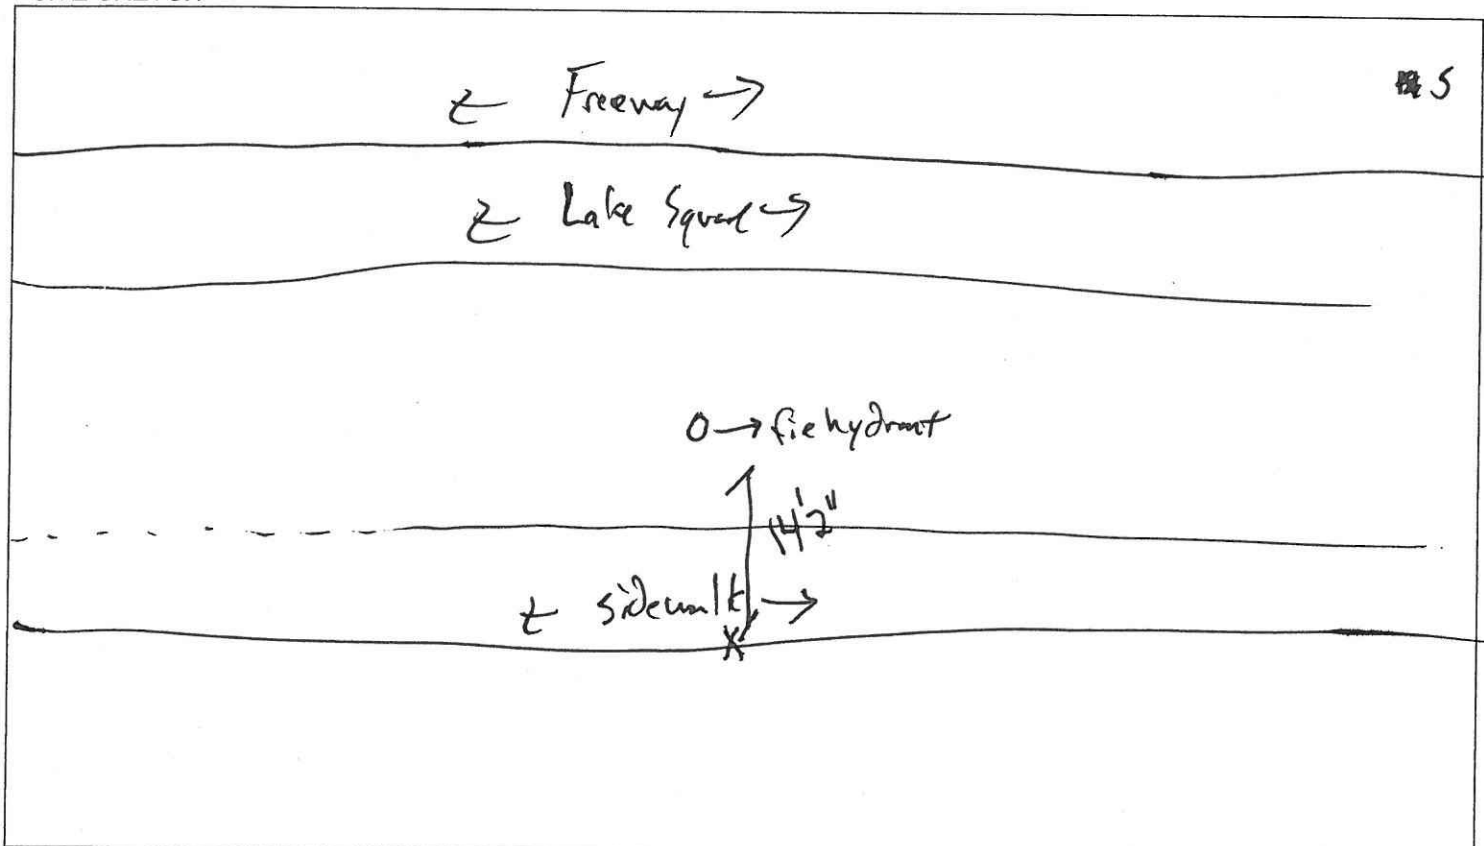 ← Freeway →
5
← Lake Square →
O → firehydrant
14'2"
← sidewalk →
X